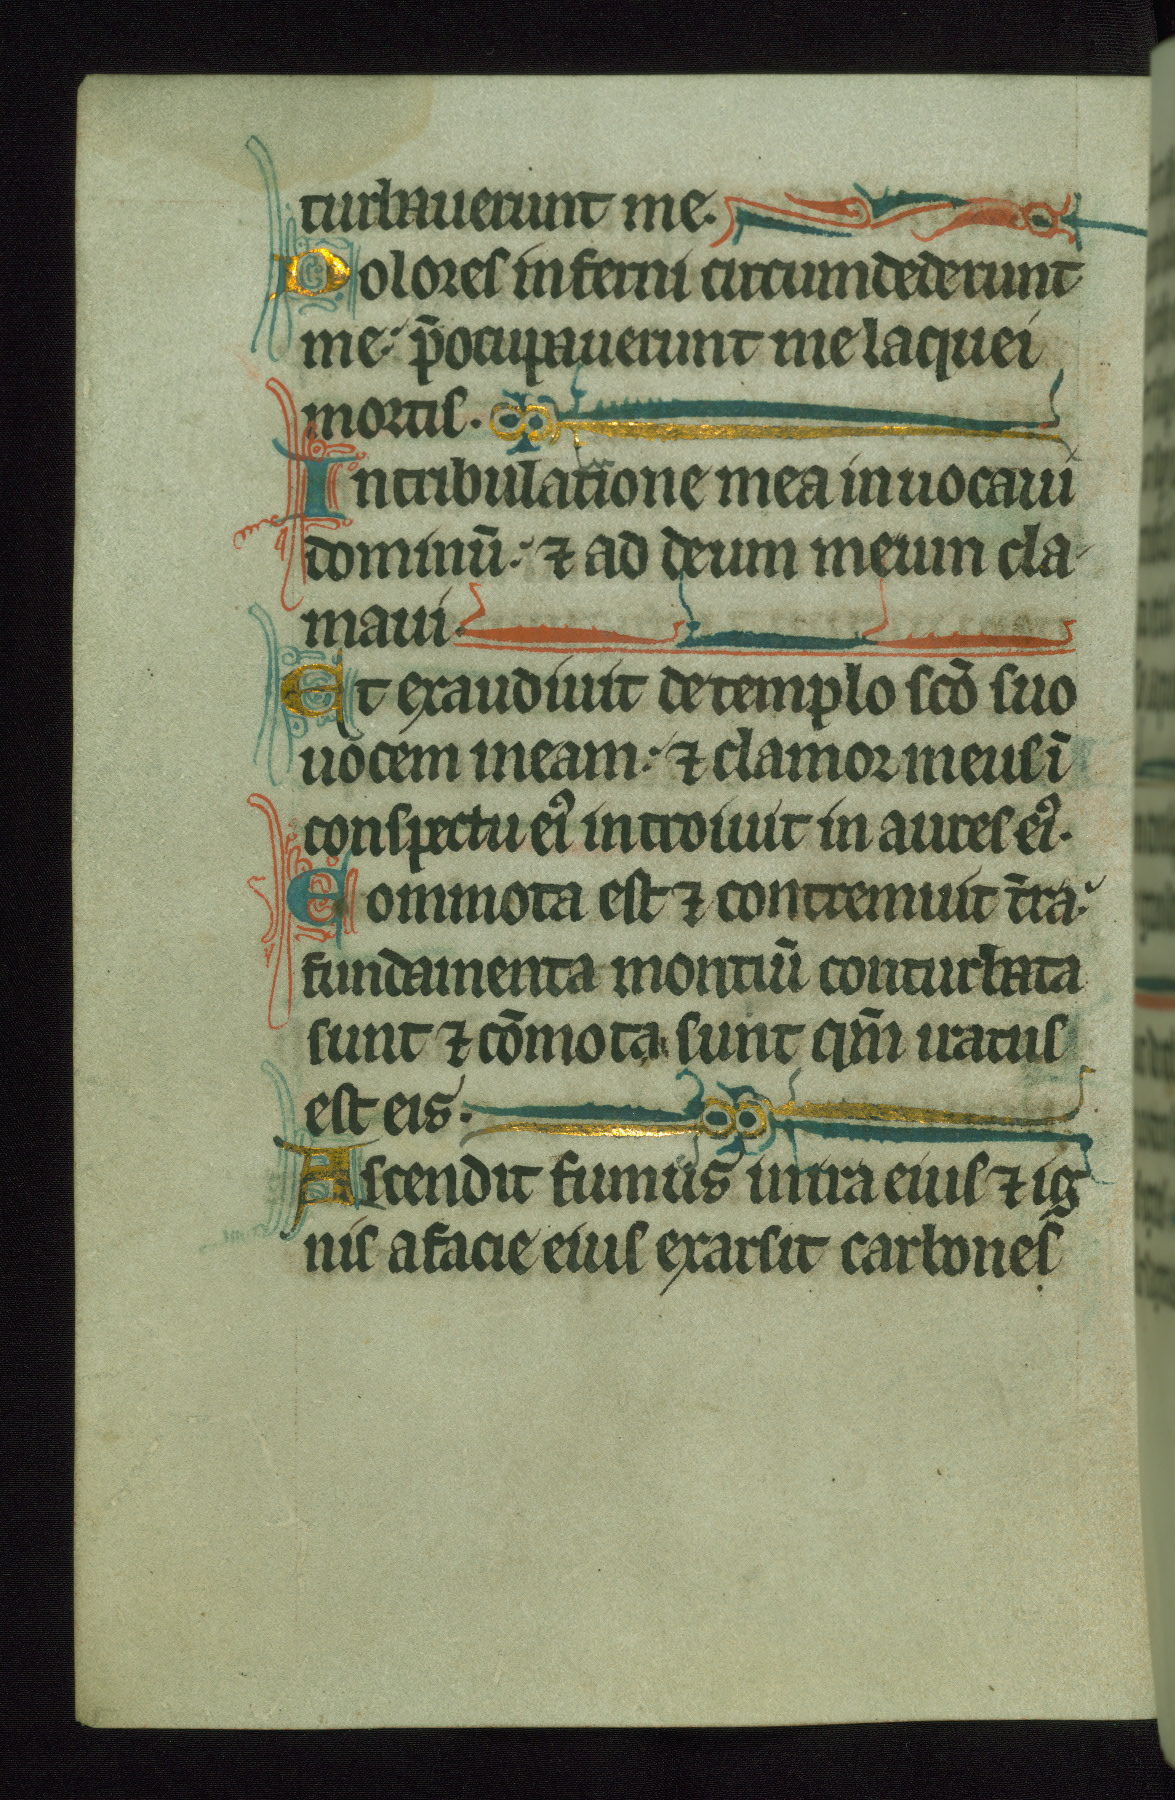 turbauerunt me.
Dolores inferni circumdederunt
me: p̄ocupauerunt me laquei
mortis.
In tribulatione mea inuocaui
dominū: ⁊ ad deum meum cla-
maui.
Et exaudiuit de templo sc̄o suo
uocem meam: ⁊ clamor meus ī
conspectu eiꝰ introiuit in aures eiꝰ.
Commota est ⁊ contremuit t̄ra:
fundamenta montiū conturbata
sunt ⁊ cōmota sunt qm̄ iratus
est eis.
Ascendit fumus in ira eius ⁊ ig
nis a facie eius exarsit carbones